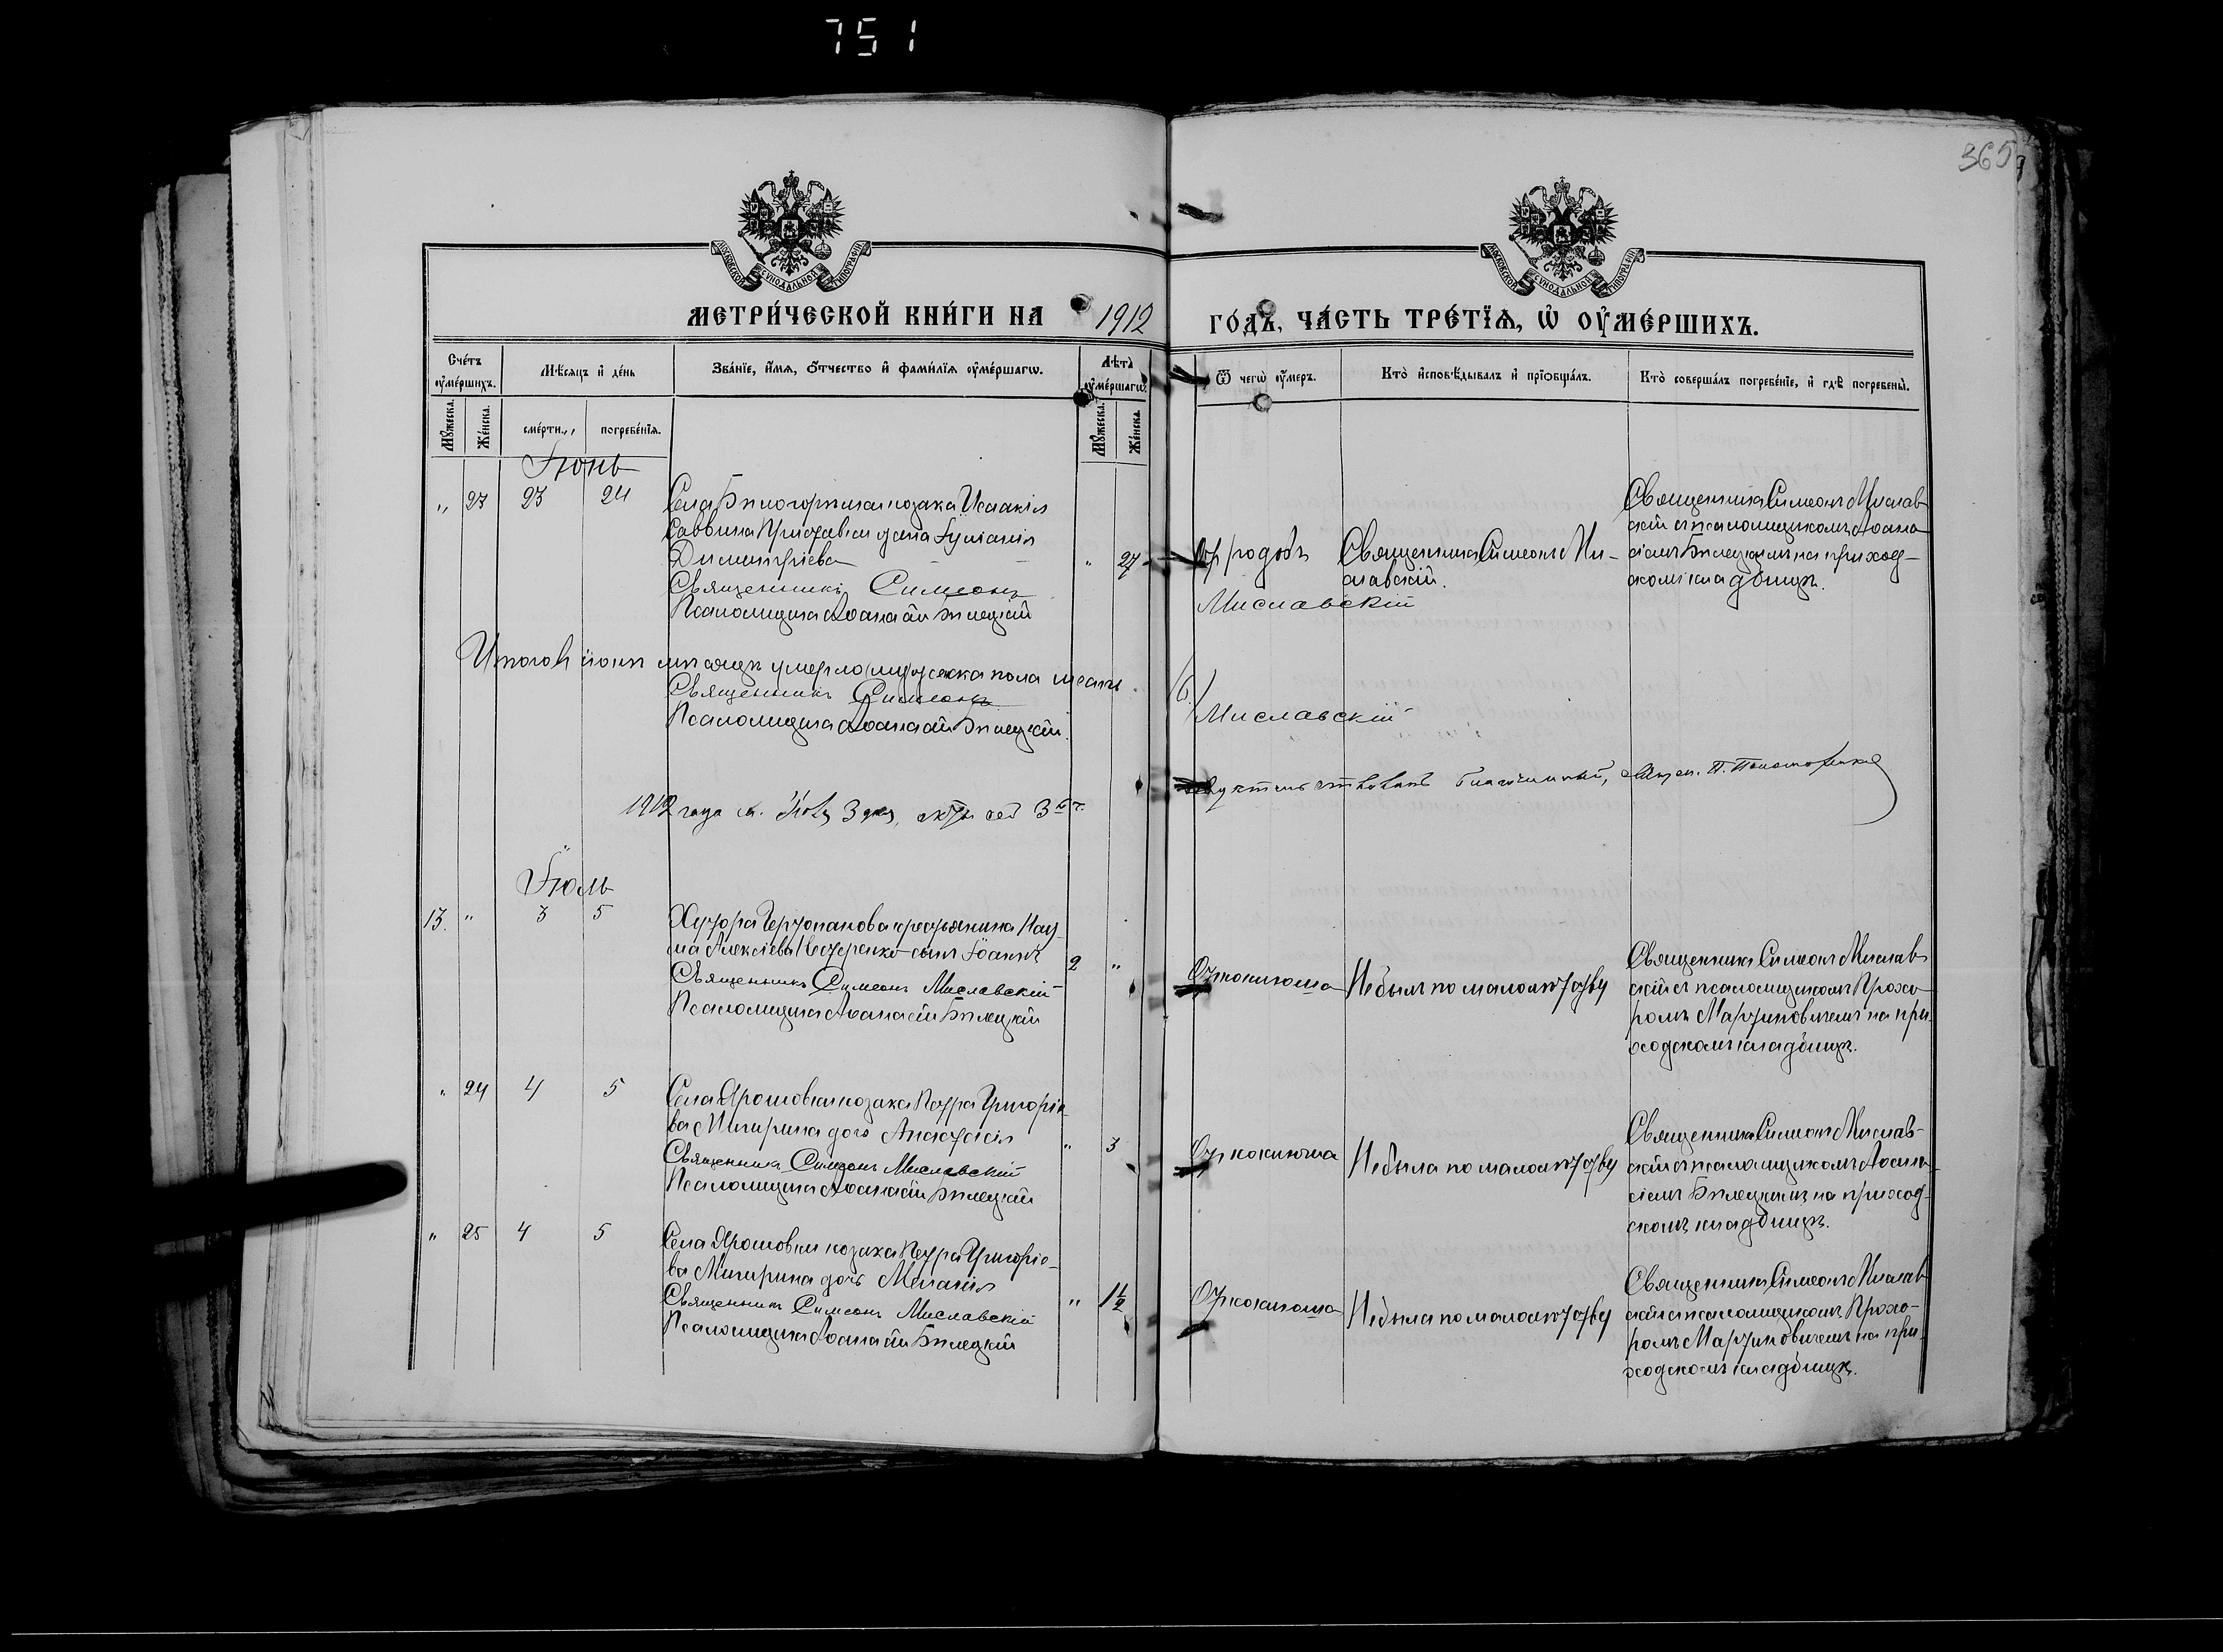 751
365
МЕТРИ́ЧЕСКОЙ КНИ́ГИ НА 1912 ГО́ДЪ, ЧА́СТЬ ТРЕ́ТЇѦ, Ѡ҆ ОУ҆МЕ́РШИХЪ.
Сче́тъ оу҆ме́ршихъ.
Мꙋ́жеска.
Же́нска.
Мѣ́сяцъ и҆ де́нь
сме́рти.
погребе́нїѧ.
Зва́нїе, и҆́мѧ, ѻ҆́тчество и҆ фами́лїѧ оу҆ме́ршагѡ.
Лѣ́та оу҆ме́ршагѡ.
Мꙋ́жеска.
Же́нска.
Ѿ чегѡ̀ оу҆́меръ.
Кто̀ и҆сповѣ́дывалъ и҆ прїѡбща́лъ.
Кто̀ соверша́лъ погребе́нїе, и҆ гдѣ̀ погребены̀.
Іюнь
" 23 23 24
Села Бѣлогорѣлки козака
Саввина жена
Димитріева
Священникъ Симеонъ Миславскій
Псаломщикъ Аѳанасій Бѣлецкій
" 27
Отъ родовъ
Священникъ Симеонъ Ми-
славскій.
Священникъ Симеонъ Мислав-
скій съ псаломщикомъ Аѳана-
сіемъ Бѣлецкимъ на приход-
скомъ кладбищѣ.
Итого въ іюнѣ мѣсяцѣ умерло мужеска пола шесть (6)
Священникъ Симеонъ Миславскій
Псаломщикъ Аѳанасій Бѣлецкій.
1912 года м. 3 дня, сей
благочинный, свящ. П.
Іюль
13. " 3 5
Хутора крестьянина Нау-
ма Алексіева Нестеренко сынъ Іоаннъ
Священникъ Симеонъ Миславскій
Псаломщикъ Аѳанасій Бѣлецкій
2 "
Отъ коклюша
Не былъ по малолѣтству
Священникъ Симеонъ Мислав-
скій съ псаломщикомъ Прохо-
ромъ Мартиновичемъ на при-
ходскомъ кладбищѣ.
" 24 4 5
Села Ярошовки козака Петра Григоріе-
ва Мигирина дочь Анастасія
Священникъ Симеонъ Миславскій
Псаломщикъ Аѳанасій Бѣлецкій
" 3
Отъ коклюша
Не была по малолѣтству
Священникъ Симеонъ Мислав-
скій съ псаломщикомъ Аѳана-
сіемъ Бѣлецкимъ на приход-
скомъ кладбищѣ.
" 25 4 5
Села Ярошовки козака Петра Григоріе-
ва Мигирина дочь Меланія
Священникъ Симеонъ Миславскій
Псаломщикъ Аѳанасій Бѣлецкій
" 1½
Отъ коклюша
Не была по малолѣтству
Священникъ Симеонъ Мислав-
скій съ псаломщикомъ Прохо-
ромъ Мартиновичемъ на при-
ходскомъ кладбищѣ.